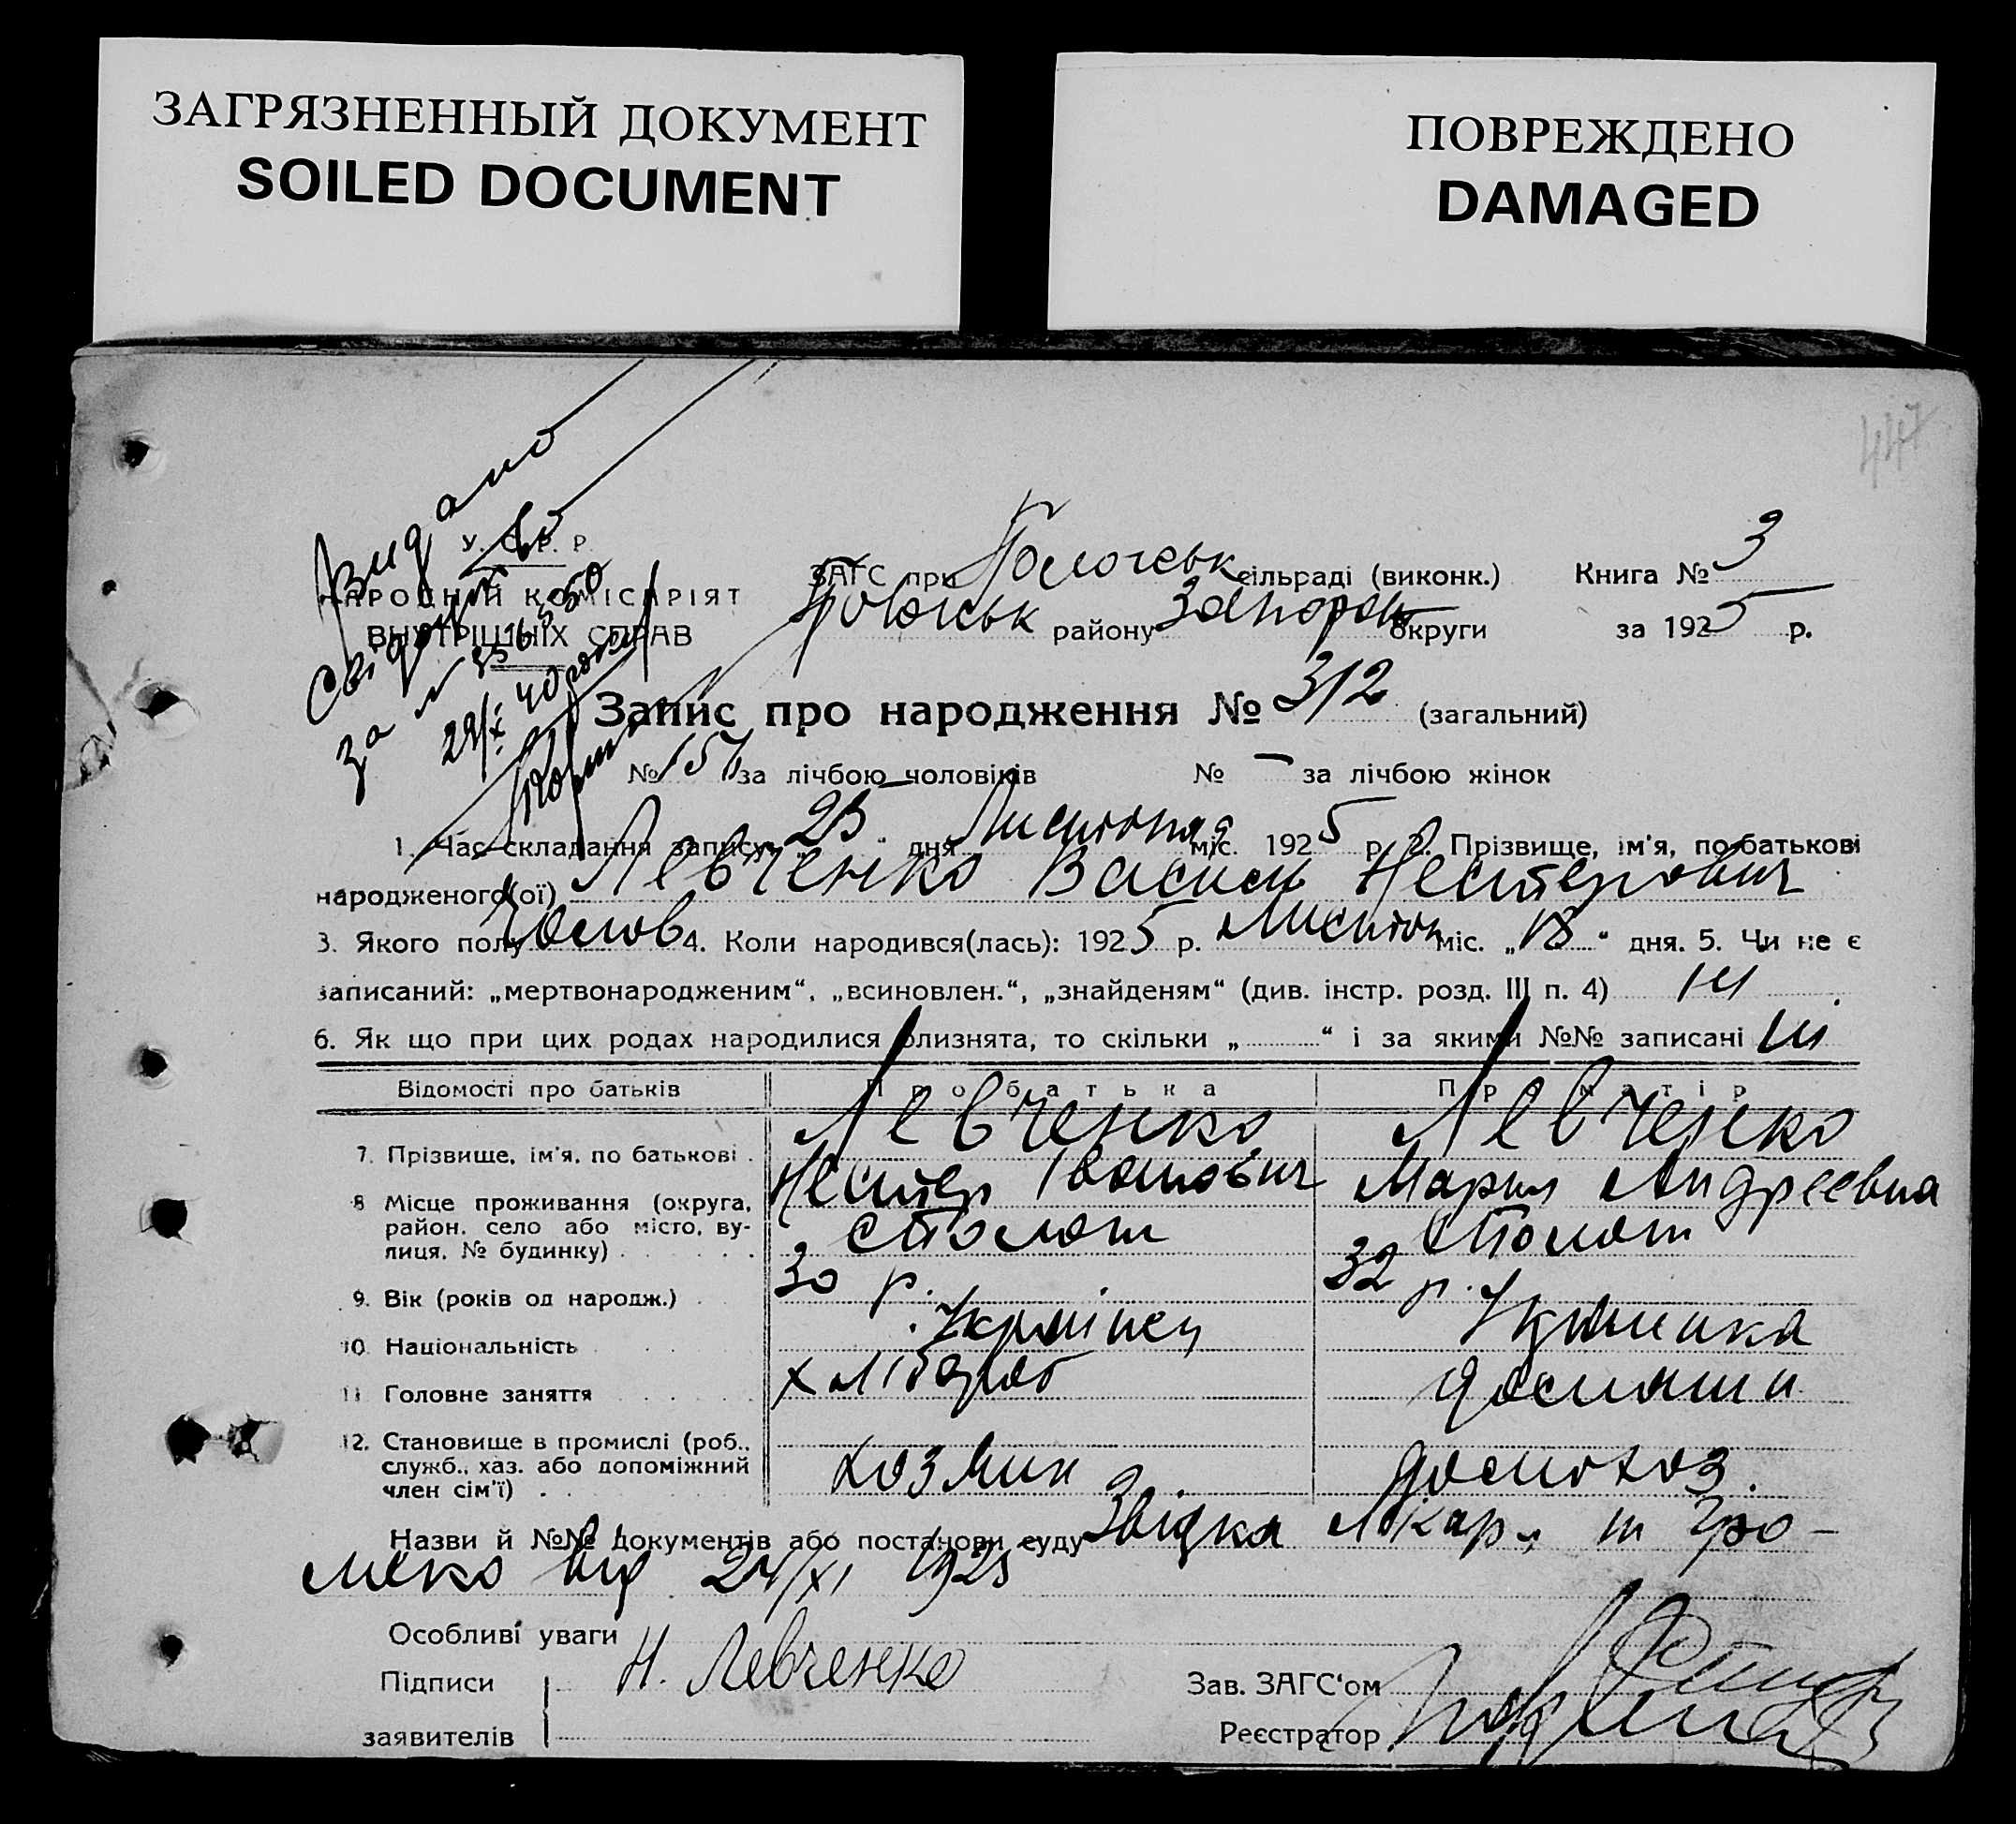 ЗАГРЯЗНЕННЫЙ ДОКУМЕНТ
SOILED DOCUMENT
ПОВРЕЖДЕНО
DAMAGED
447
Видано
Свідоцтво
за №
29/X 40 року
У. С. Р. Р.
НАРОДНІЙ КОМІСАРІЯТ
ВНУТРІШНІХ СПРАВ
ЗАГС при Пологськ сільраді (виконк.) Книга № 3
Пологськ району Запоріж округи за 1925 р.
Запис про народження № 312 (загальний)
№ 157 за лічбою чоловіків № – за лічбою жінок
1. Час складання запису: „25“ дня Листопад міс. 1925 р. 2. Прізвище, ім'я, по-батькові
народженого(ої) Левченко Василь Нестерович
3. Якого полу Чолов 4. Коли народився(лась): 1925 р. Листоп міс. „18“ дня. 5. Чи не є
записаний: „мертвонародженим“, „всиновлен.“, „знайденям“ (див. інстр. розд. III п. 4) ні
6. Як що при цих родах народилися близнята, то скільки „ “ і за якими №№ записані ні
Відомості про батьків Про батька Про матір
7. Прізвище, ім'я, по батькові . Левченко Нестер Іванович Левченко Мария Андреевна
8 Місце проживання (округа,
район, село або місто, ву-
лиця, № будинку) . ст Пологи ст Пологи
9. Вік (років од народж.) 30 р. 32 р.
10. Національність Українец Українка
11 Головне заняття хлібороб домашн
12. Становище в промислі (роб.,
служб., хаз. або допоміжний
член сім'ї) . хозяин домохоз.
Назви й №№ документів або постанови суду Звідка Лікар.
від 24/XI 1925
Особливі уваги
Підписи Н. Левченко Зав. ЗАГС'ом
заявителів Реєстратор